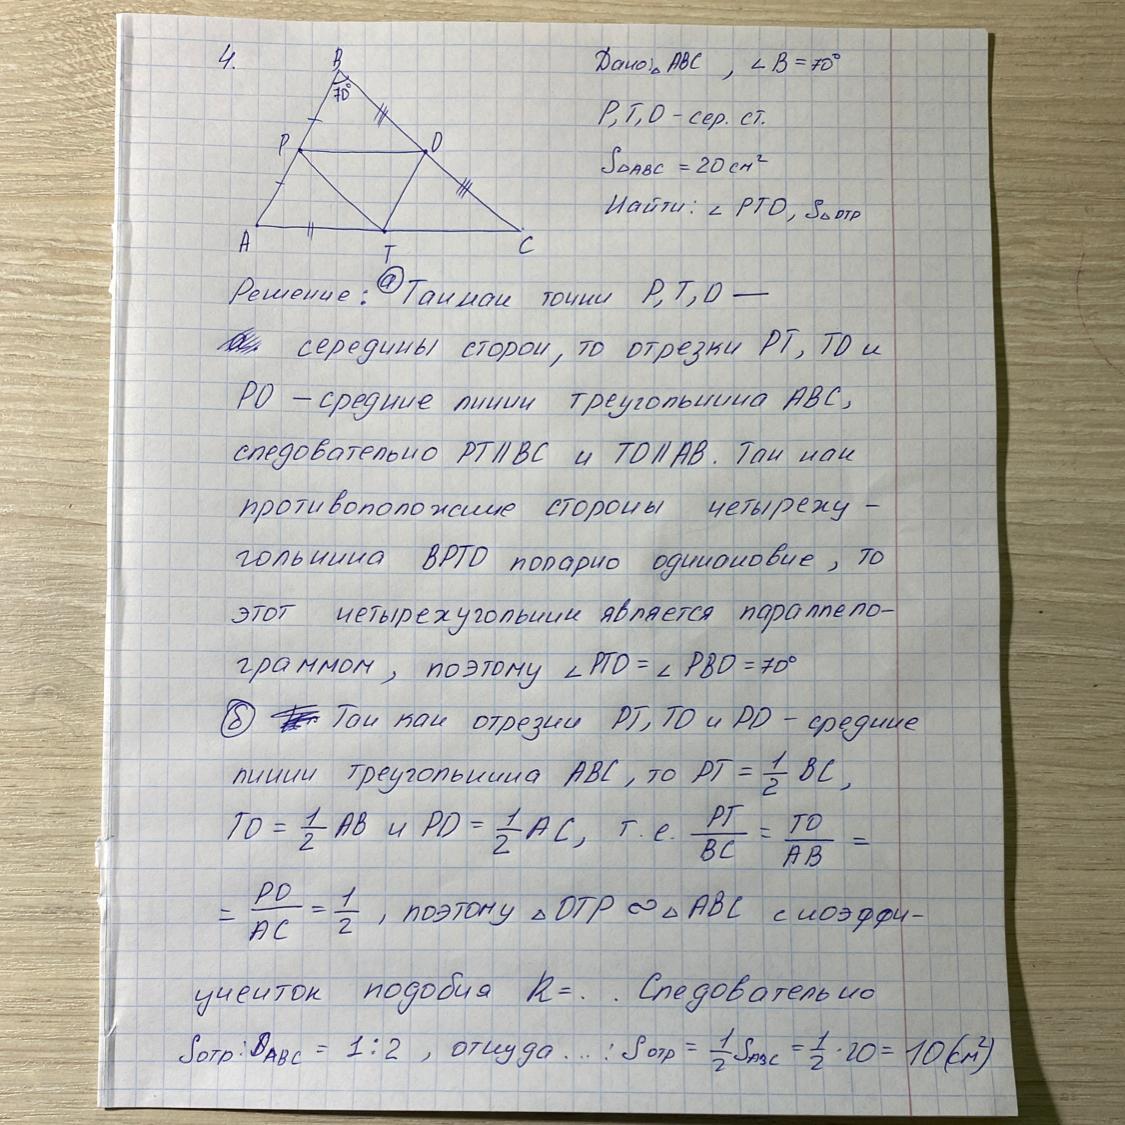 4.
B
70°
P
O
A
T
C
Дано: △ABC, ∠B = 70°
P, T, O – сер. ст.
S△ABC = 20 см²
Найти: ∠PTO, S△OTP
Решение: а) Так как точки P, T, O —
середины сторон, то отрезки PT, TO и
PO – средние линии треугольника ABC,
следовательно PT||BC и TO||AB. Так как
противоположные стороны четыреху-
гольника BPTO попарно одинаковые, то
этот четырехугольник является параллело-
граммом, поэтому ∠PTO = ∠PBO = 70°
б) Так как отрезки PT, TO и PO – средние
линии треугольника ABC, то PT = 1/2 BC,
TO = 1/2 AB и PO = 1/2 AC, т.е. PT/BC = TO/AB =
= PO/AC = 1/2, поэтому △OTP ∞ △ABC с коэффи-
циентом подобия k = . . Следовательно
Sотр : SABC = 1:2, откуда ... : Sотр = 1/2 SABC = 1/2 · 20 = 10 (см²)